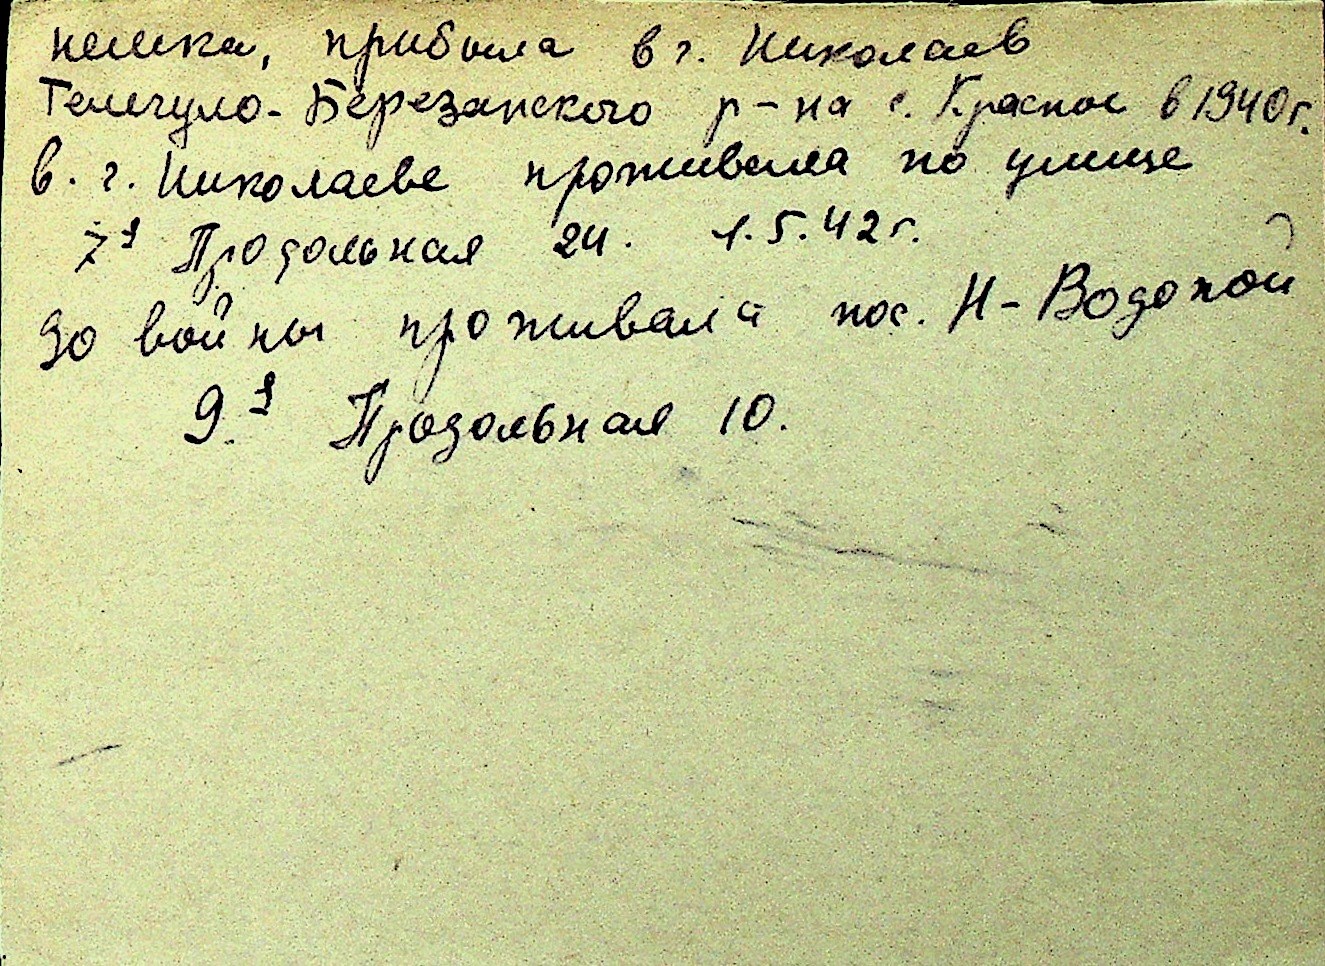 немка, прибыла в г. Николаев
Телигуло-Березанского р-на с. Красное в 1940г.
в. г. Николаеве проживала по улице
7я Продольная 24. 1.5.42г.
До войны проживала пос. Н-Водопой
9.я Продольная 10.